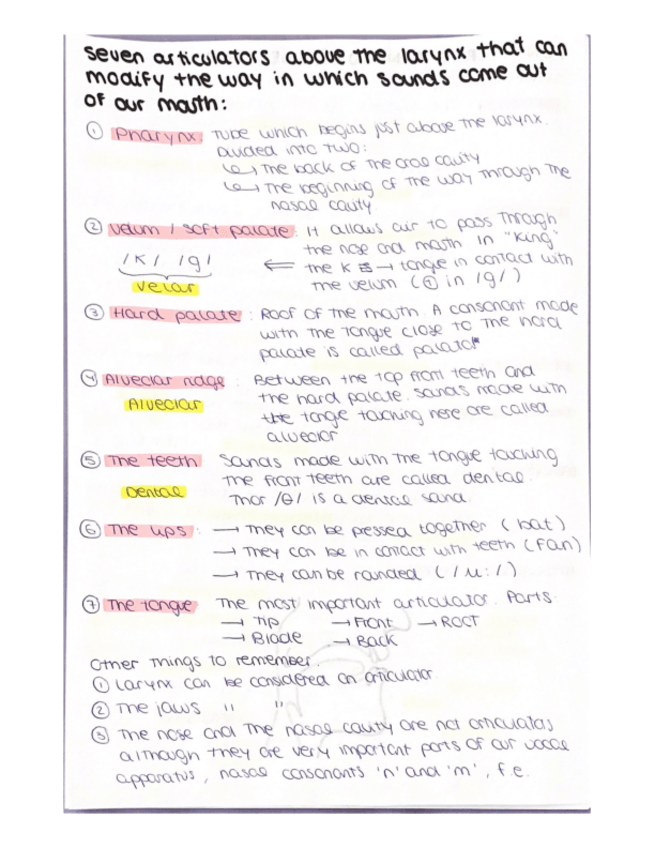 seven articulators above the larynx that can
modify the way in which sounds come out
of our mouth:
① Pharynx: Tube which begins just above the larynx.
Divided into two:
↳ The back of the oral cavity
↳ The beginning of the way through the
nasal cavity
② Velum / soft palate: It allows air to pass through
the nose and mouth in "king"
/k/ /g/ ⇐ the k → tongue in contact with
velar the velum (① in /g/)
③ Hard palate: Roof of the mouth. A consonant made
with the tongue close to the hard
palate is called palatal
④ Alveolar ridge: Between the top front teeth and
Alveolar the hard palate. Sounds made with
the tongue touching here are called
alveolar
⑤ The teeth Sounds made with the tongue touching
the front teeth are called dental.
Dental /θ/ is a dental sound
⑥ The lips: → They can be pressed together (bat)
→ They can be in contact with teeth (fan)
→ They can be rounded (/u:/)
⑦ The tongue The most important articulator. Parts:
→ Tip → Front → Root
→ Blade → Back
Other things to remember.
① Larynx can be considered an articulator
② The jaws " "
③ The nose and the nasal cavity are not articulators
although they are very important parts of our vocal
apparatus, nasal consonants 'n' and 'm', f.e.